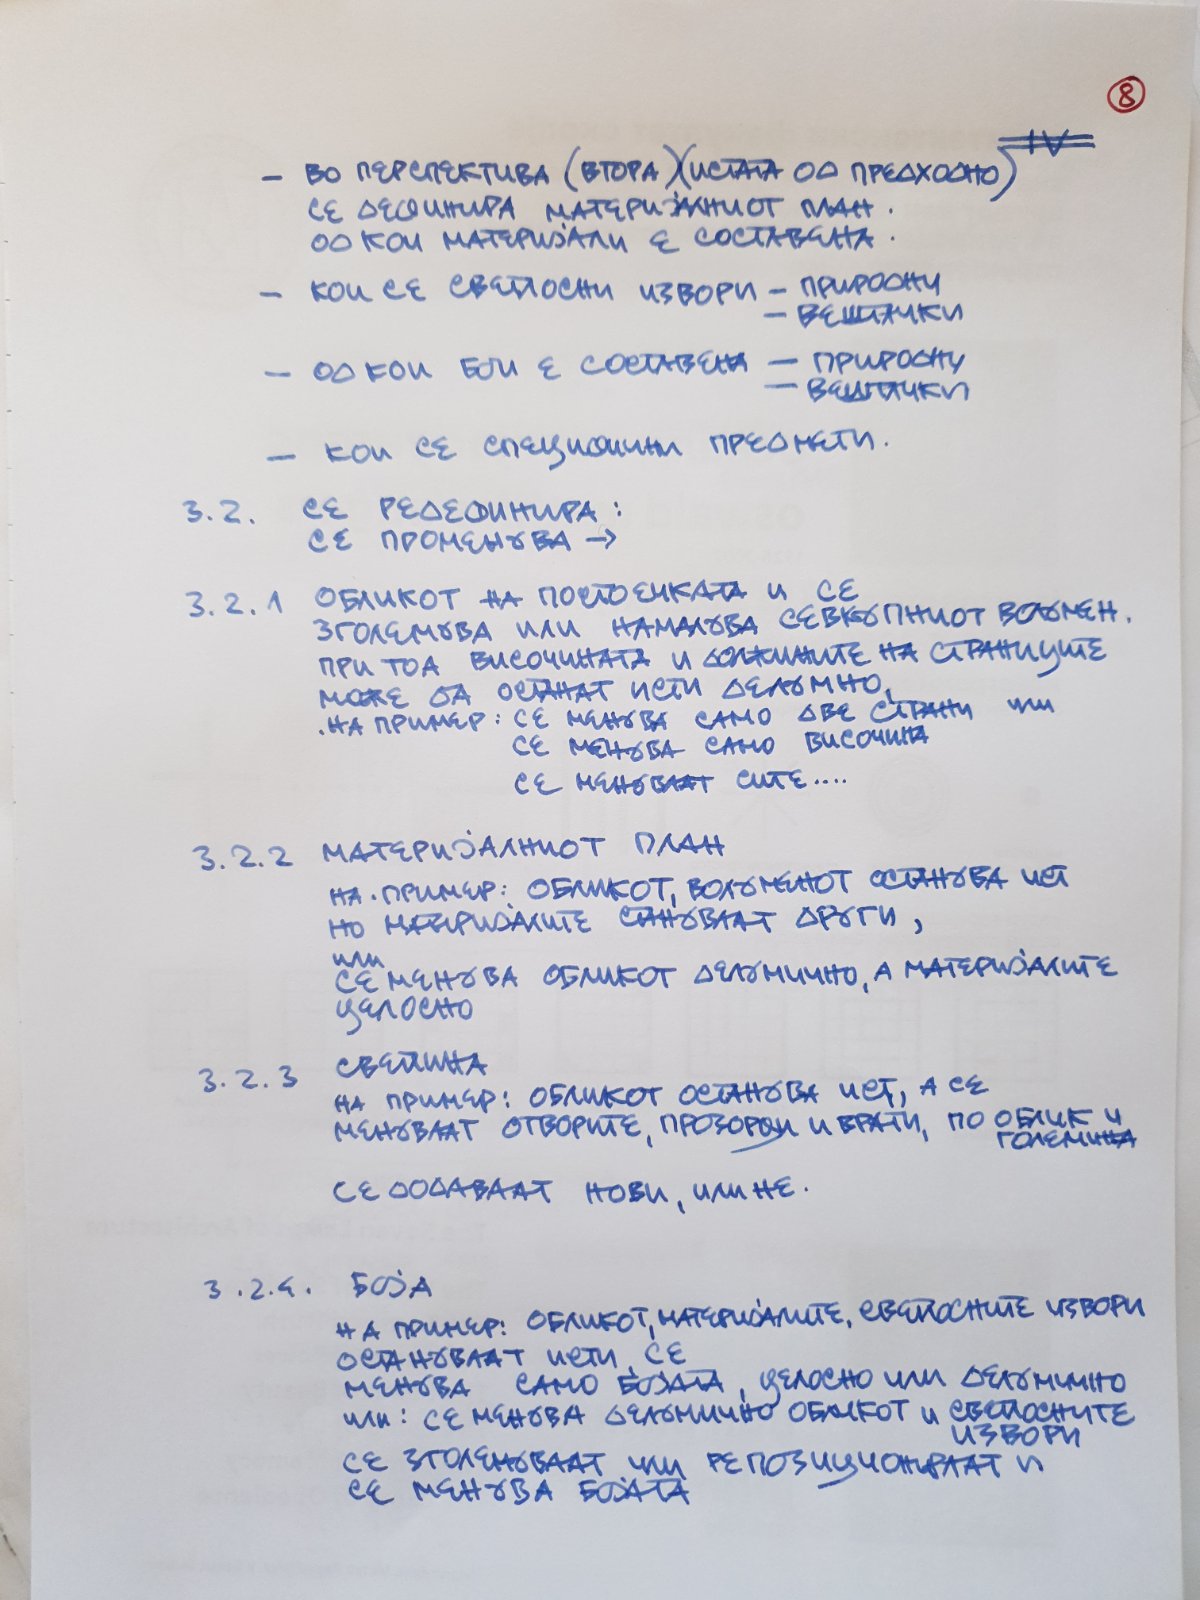 8
IV
- ВО ПЕРСПЕКТИВА (ВТОРА) (ИСТАТА ОД ПРЕДХОДНО)
СЕ ДЕФИНИРА МАТЕРИЈАЛНИОТ ПЛАН.
ОД КОИ МАТЕРИЈАЛИ Е СОСТАВЕНА.
- КОИ СЕ СВЕТЛОСНИ ИЗВОРИ - ПРИРОДНИ
- ВЕШТАЧКИ
- ОД КОИ БОИ Е СОСТАВЕНА - ПРИРОДНИ
- ВЕШТАЧКИ
- КОИ СЕ СПЕЦИФИЧНИ ПРЕДМЕТИ.
3.2. СЕ РЕДЕФИНИРА:
СЕ ПРОМЕНУВА →
3.2.1 ОБЛИКОТ НА ПОСТОЕЧКАТА И СЕ
ЗГОЛЕМУВА ИЛИ НАМАЛУВА СЕВКУПНИОТ ВОЛУМЕН.
ПРИ ТОА ВИСОЧИНАТА И ДОЛЖИНИТЕ НА СТРАНИЦИТЕ
МОЖЕ ДА ОСТАНАТ ИСТИ ДЕЛУМНО,
.НА ПРИМЕР: СЕ МЕНУВА САМО ДВЕ СТРАНИ ИЛИ
СЕ МЕНУВА САМО ВИСОЧИНА
СЕ МЕНУВААТ СИТЕ....
3.2.2 МАТЕРИЈАЛНИОТ ПЛАН
НА ПРИМЕР: ОБЛИКОТ, ВОЛУМЕНОТ ОСТАНУВА ИСТ
НО МАТЕРИЈАЛИТЕ СТАНУВААТ ДРУГИ,
ИЛИ
СЕ МЕНУВА ОБЛИКОТ ДЕЛУМИЧНО, А МАТЕРИЈАЛИТЕ
ЦЕЛОСНО
3.2.3 СВЕТЛИНА
НА ПРИМЕР: ОБЛИКОТ ОСТАНУВА ИСТ, А СЕ
МЕНУВААТ ОТВОРИТЕ, ПРОЗОРЦИ И ВРАТИ, ПО ОБЛИК И
ГОЛЕМИНА
СЕ ДОДАВААТ НОВИ, ИЛИ НЕ.
3.2.4. БОЈА
НА ПРИМЕР: ОБЛИКОТ, МАТЕРИЈАЛИТЕ, СВЕТЛОСНИТЕ ИЗВОРИ
ОСТАНУВААТ ИСТИ, СЕ
МЕНУВА САМО БОЈАТА, ЦЕЛОСНО ИЛИ ДЕЛУМИЧНО
ИЛИ: СЕ МЕНУВА ДЕЛУМИЧНО ОБЛИКОТ И СВЕТЛОСНИТЕ
ИЗВОРИ
СЕ ЗГОЛЕМУВААТ ИЛИ РЕПОЗИЦИОНИРААТ И
СЕ МЕНУВА БОЈАТА